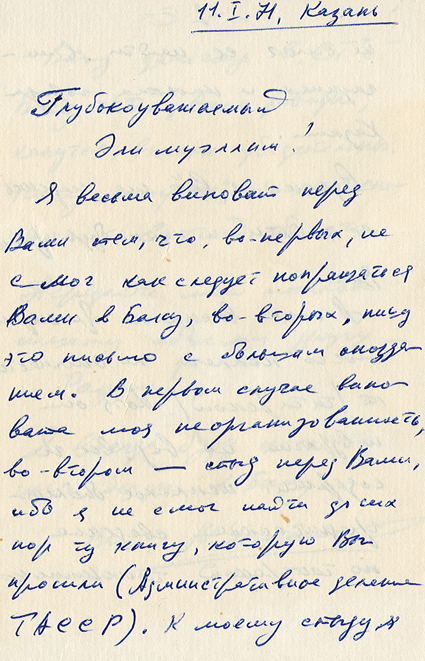 11. I. 71, Казань
Глубокоуважаемый
Эли муэллим!
Я весьма виноват перед
Вами тем, что, во-первых, не
смог как следует попрощаться
Вами в Баку, во-вторых, пишу
это письмо с большим опозда-
нием. В первом случае вино-
вата моя неорганизованность,
во-втором — стыд перед Вами,
ибо я не смог найти до сих
пор ту книгу, которую Вы
просили (Административное деление
ТАССР). К моему стыду я